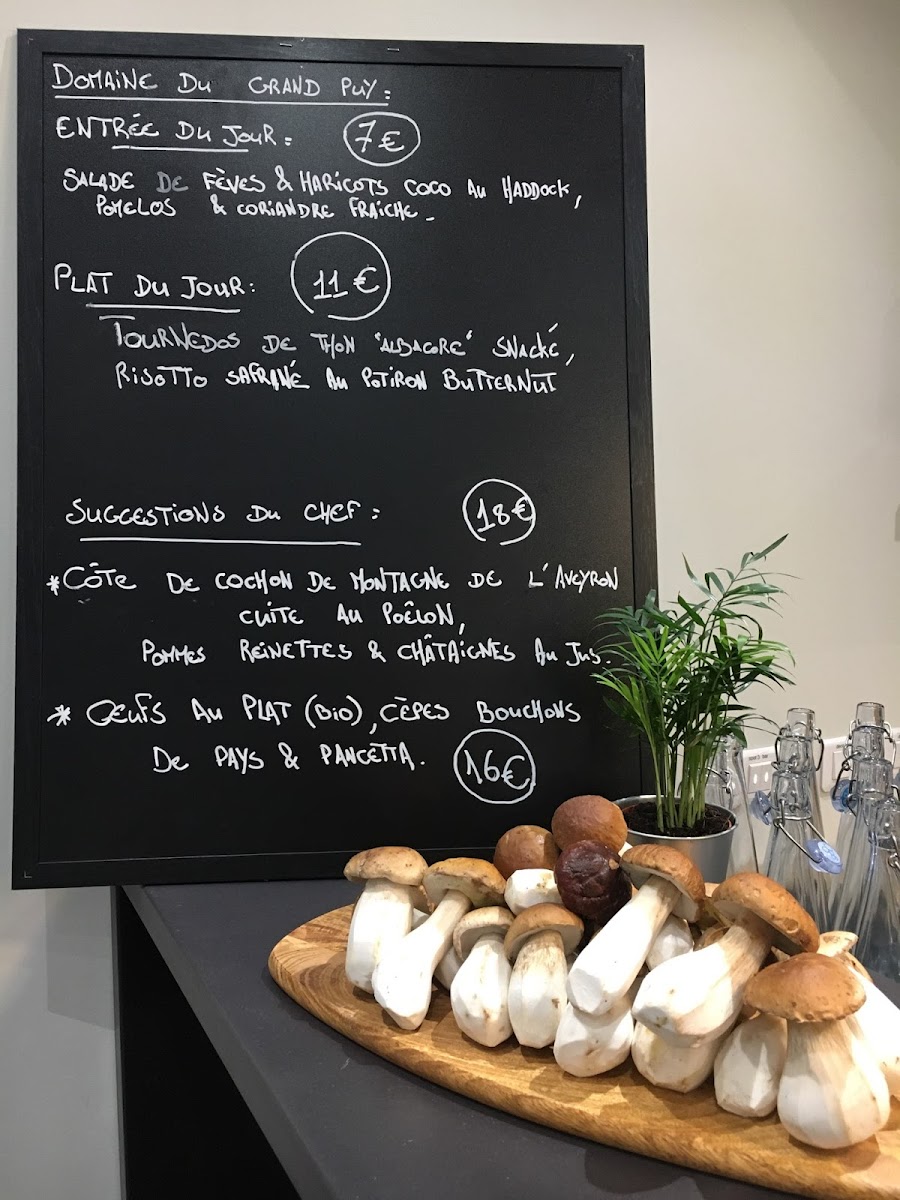 DOMAINE DU GRAND PUY:
ENTRÉE DU JOUR: 7€
SALADE DE FÈVES & HARICOTS COCO AU HADDOCK,
POMELOS & CORIANDRE FRAICHE.
PLAT DU JOUR: 11€
TOURNEDOS DE THON "ALBACORE" SNACKÉ,
RISOTTO SAFRANÉ AU POTIRON BUTTERNUT
SUGGESTIONS DU CHEF: 18€
*CÔTE DE COCHON DE MONTAGNE DE L'AVEYRON
CUITE AU POÊLON,
POMMES REINETTES & CHÂTAIGNES AU JUS.
* OEUFS AU PLAT (BIO), CÈPES BOUCHONS
DE PAYS & PANCETTA. 16€